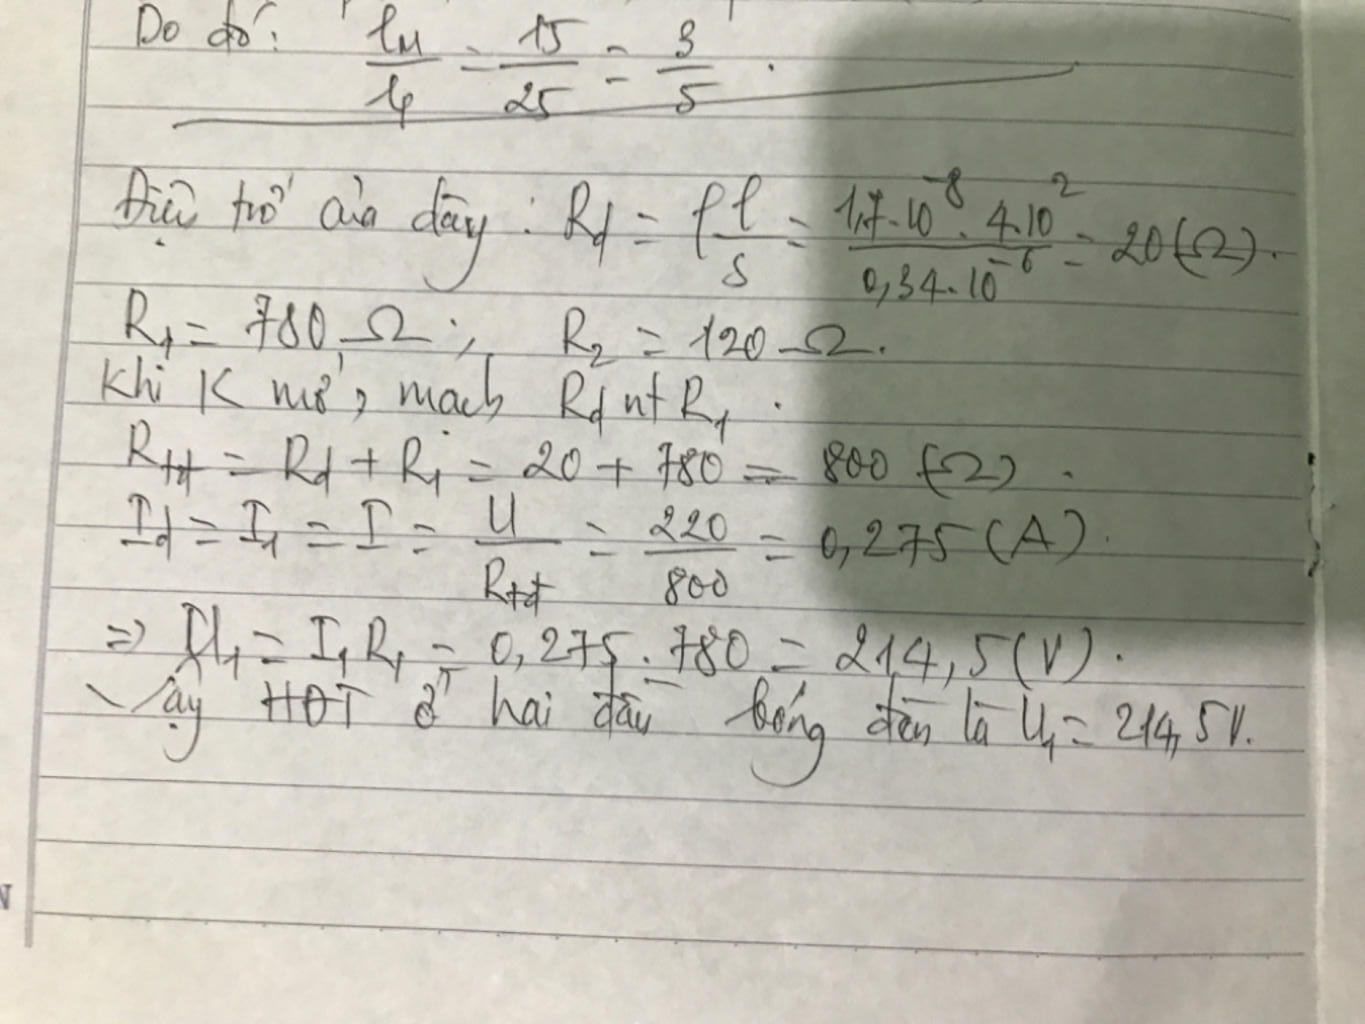 Do đó: lM/l4 = 15/25 = 3/5.
Điện trở của dây: Rd = ρ l/S = 1,7.10^-8 . 4.10^2 / 0,34.10^-6 = 20(Ω).
R1 = 780 Ω; R2 = 120 Ω.
Khi K mở, mạch Rd nt R1.
Rtđ = Rd + R1 = 20 + 780 = 800 (Ω).
Id = I1 = I = U/Rtđ = 220/800 = 0,275 (A).
=> U1 = I1 R1 = 0,275 . 780 = 214,5 (V).
Vậy HĐT ở hai đầu bóng đèn là U1 = 214,5V.
N